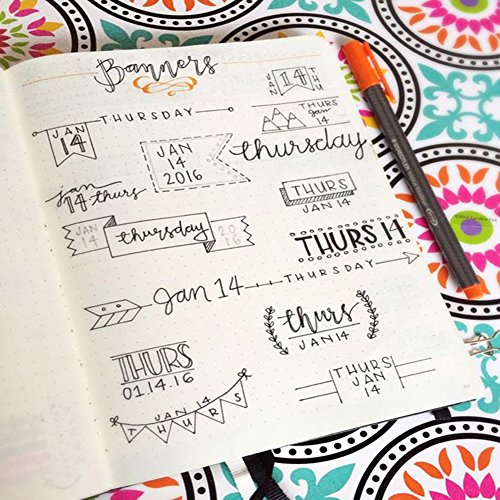 Banners
THURSDAY
JAN
14
JAN 14 THU
THURS
Jan
14
JAN
14
2016
thursday
jan
14 thurs
THURS
JAN 14
JAN
14
thursday
20
16
THURS 14
Jan 14
THURSDAY
thurs
JAN 14
THURS
01.14.16
THURS
JAN
14
JAN 14
THURS